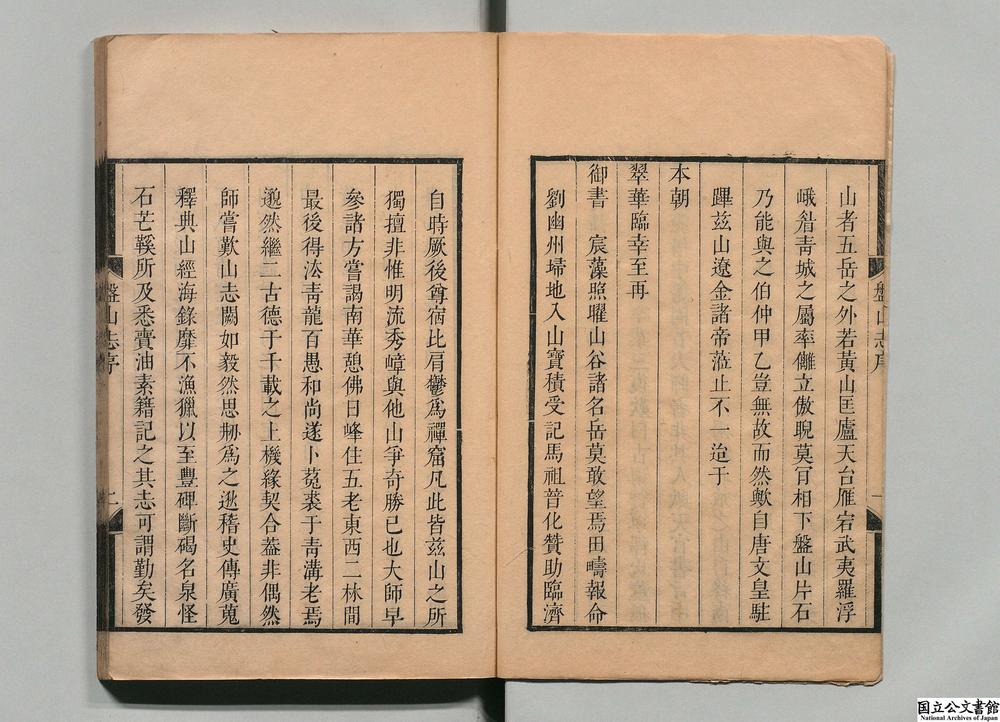 山者五岳之外若黃山匡廬天台雁宕武夷羅浮
峨眉靑城之屬率雠立傲睨莫肎相下盤山片石
乃能與之伯仲甲乙豈無故而然歟自唐文皇駐
蹕玆山遼金諸帝蒞止不一迨于
本朝
翠華臨幸至再
御書 宸藻照曜山谷諸名岳莫敢望焉田疇報命
劉幽州埽地入山寶積受記馬祖普化贊助臨濟
盤山志序
一
自時厥後尊宿比肩鬱爲禪窟凡此皆玆山之所
獨擅非惟明流秀嶂與他山爭奇勝已也大師早
參諸方嘗謁南華憩佛日峰住五老東西二林間
最後得法靑龍百愚和尚遂卜菟裘于靑溝老焉
邈然繼二古德于千載之上機緣契合葢非偶然
師嘗歎山志闕如毅然思刱爲之逖稽史傳廣蒐
釋典山經海錄靡不漁獵以至豐碑斷碣名泉怪
石芒鞵所及悉賫油素籍記之其志可謂勤矣發
盤山志序
二
国立公文書館
National Archives of Japan